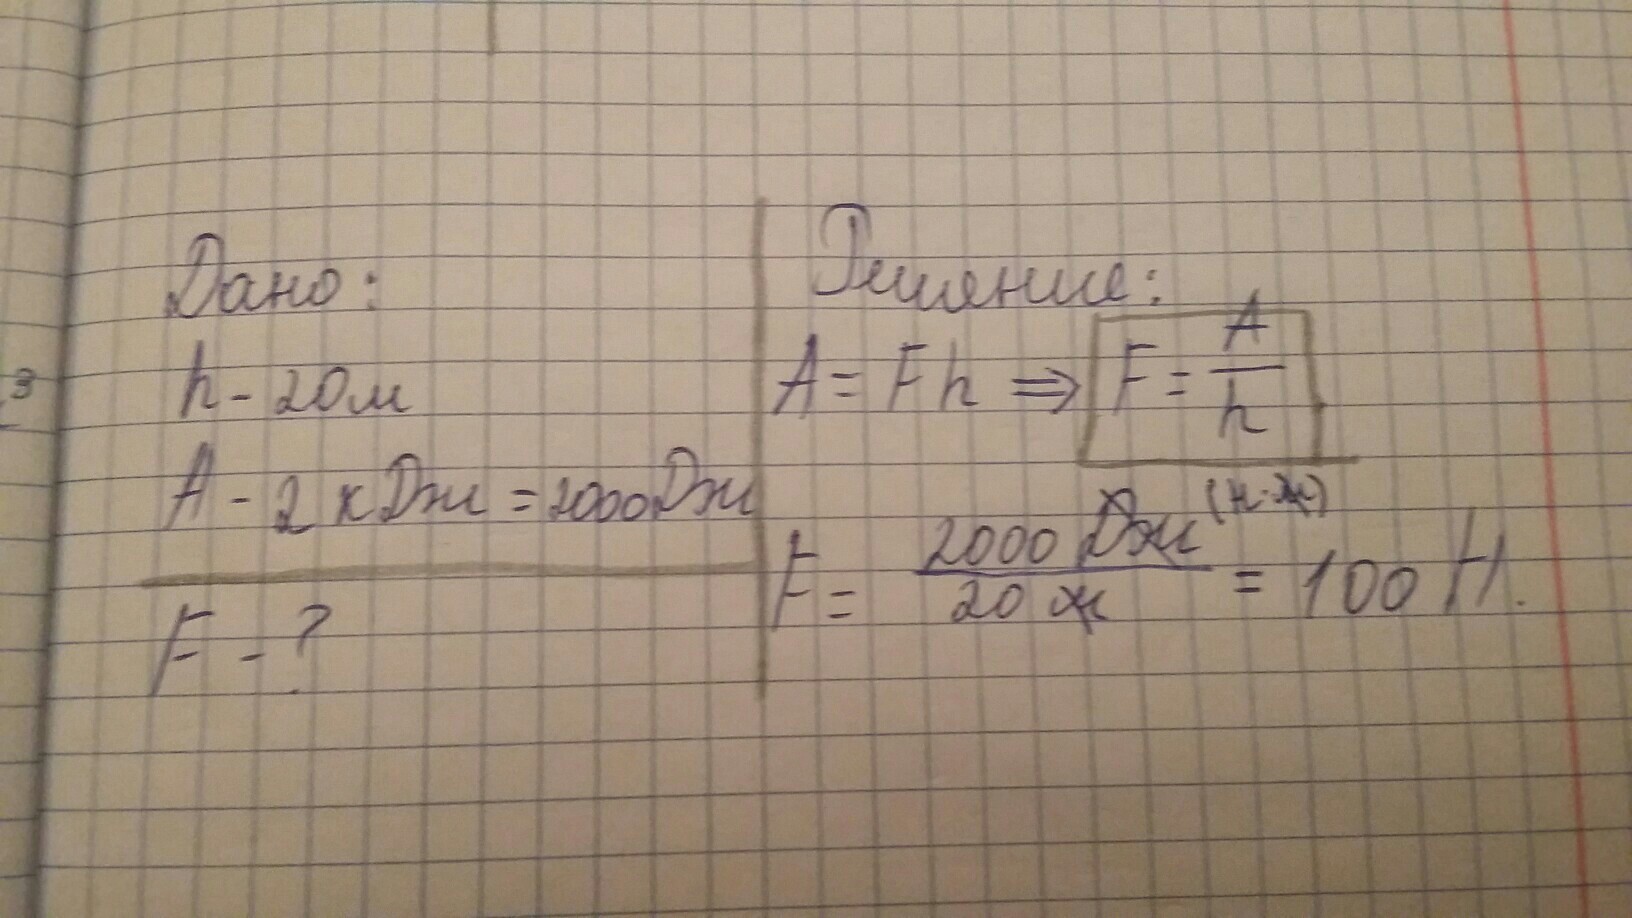 Дано:
h - 20м
A - 2 кДж = 2000Дж
F - ?
Решение:
A = F h ⇒ F = A/h
F = 2000 Дж (н·м) / 20 м = 100 Н.
з